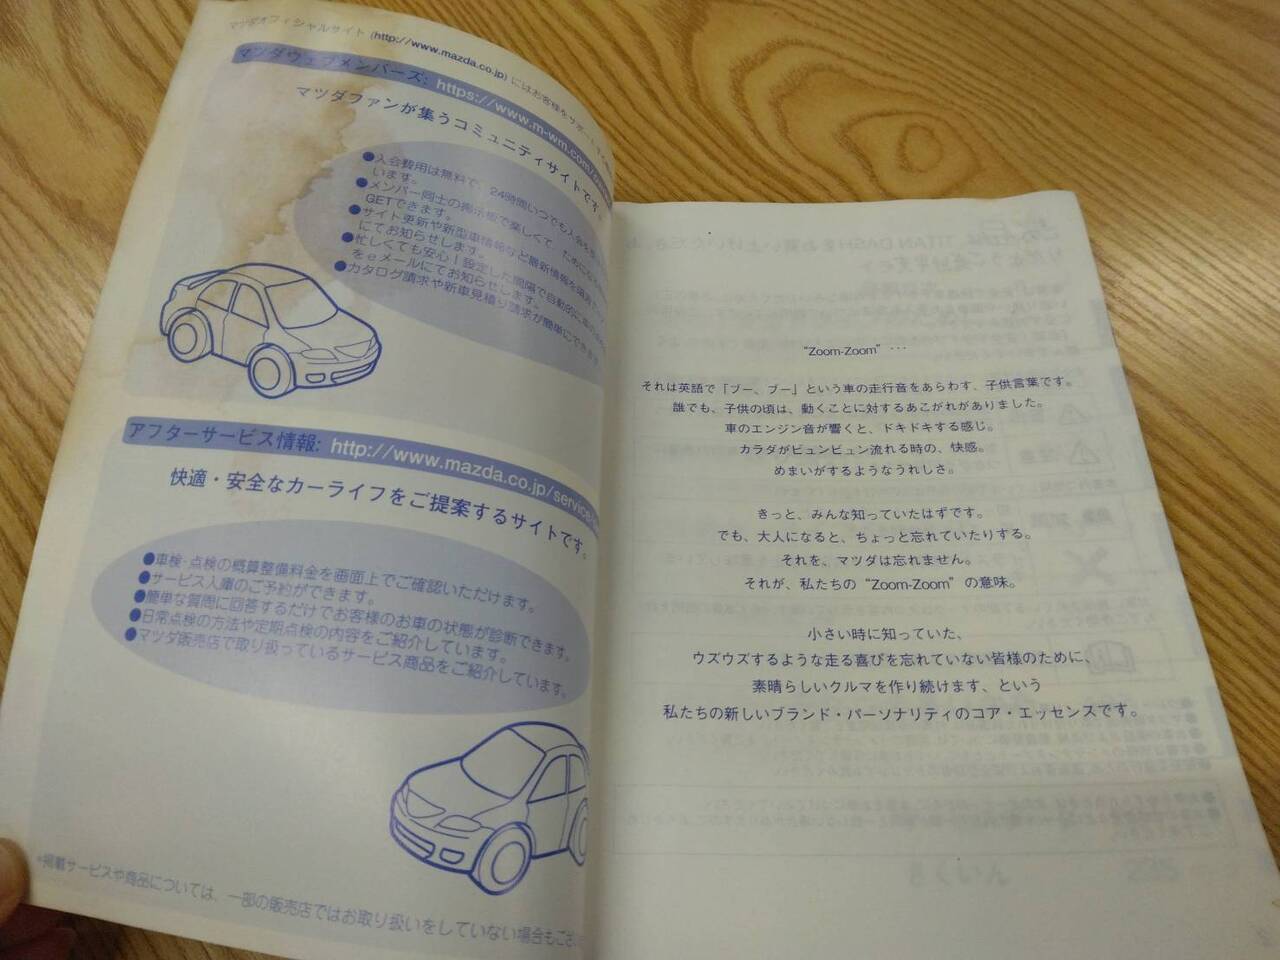 マツダオフィシャルサイト (http://www.mazda.co.jp) にはお客様をサポートする
マツダウェブメンバーズ: https://www.m-wm.com/
マツダファンが集うコミュニティサイトです。
●入会費用は無料で、24時間いつでも入会を
います。
●メンバー同士の掲示板で楽しくて、ためになる
GETできます。
●サイト更新や新型車情報など最新情報を
にてお知らせします。
●忙しくても安心！設定した間隔で自動的に
をeメールにてお知らせします。
●カタログ請求や新車見積り請求が簡単にできます
アフターサービス情報: http://www.mazda.co.jp/service/
快適・安全なカーライフをご提案するサイトです。
●車検・点検の概算整備料金を画面上でご確認いただけます。
●サービス入庫のご予約ができます。
●簡単な質問に回答するだけでお客様のお車の状態が診断できます。
●日常点検の方法や定期点検の内容をご紹介しています。
●マツダ販売店で取り扱っているサービス商品をご紹介しています。
*掲載サービスや商品については、一部の販売店ではお取り扱いをしていない場合もござい
“Zoom-Zoom” ･･･
それは英語で「ブー、ブー」という車の走行音をあらわす、子供言葉です。
誰でも、子供の頃は、動くことに対するあこがれがありました。
車のエンジン音が響くと、ドキドキする感じ。
カラダがビュンビュン流れる時の、快感。
めまいがするようなうれしさ。
きっと、みんな知っていたはずです。
でも、大人になると、ちょっと忘れていたりする。
それを、マツダは忘れません。
それが、私たちの “Zoom-Zoom” の意味。
小さい時に知っていた、
ウズウズするような走る喜びを忘れていない皆様のために、
素晴らしいクルマを作り続けます、という
私たちの新しいブランド・パーソナリティのコア・エッセンスです。